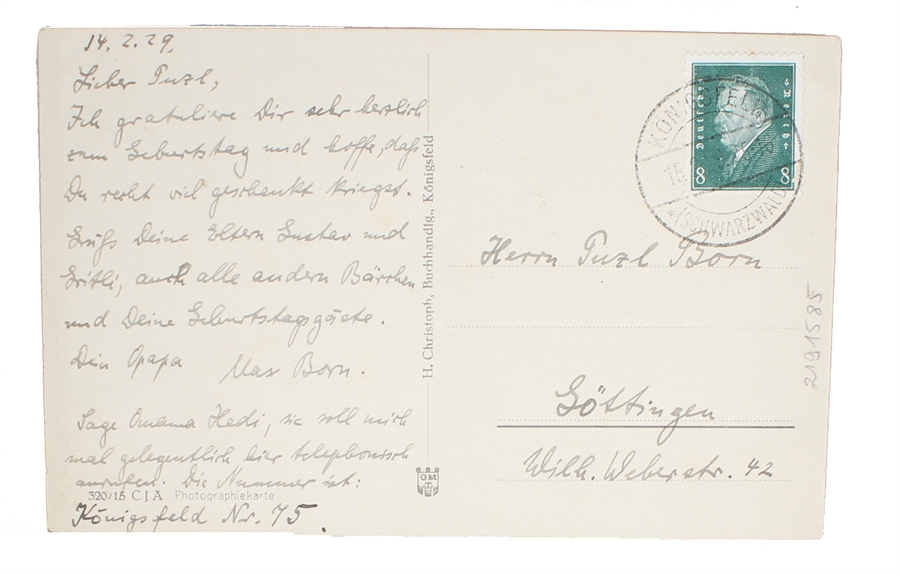 14. 2. 29.
Lieber Puzl,
Ich gratuliere Dir sehr herzlich
zum Geburtstag und hoffe, daß
Du recht viel geschenkt kriegst.
Grüß Deine Eltern Gustav und
Gritli, auch alle andern Bärchen
und Deine Geburtstagsgäste.
Dein Opapa Max Born.
Sage Omama Hedi, sie soll mich
mal gelegentlich hier telephonisch
anrufen. Die Nummer ist:
Königsfeld Nr. 75.
320/15 CJA Photographiekarte
H. Christoph, Buchhandlg., Königsfeld
GM
Deutsches Reich
8 8
KÖNIGSFELD
15
(SCHWARZWALD)
Herrn Puzl Born
Göttingen
Wilh. Weberstr. 42
2191585